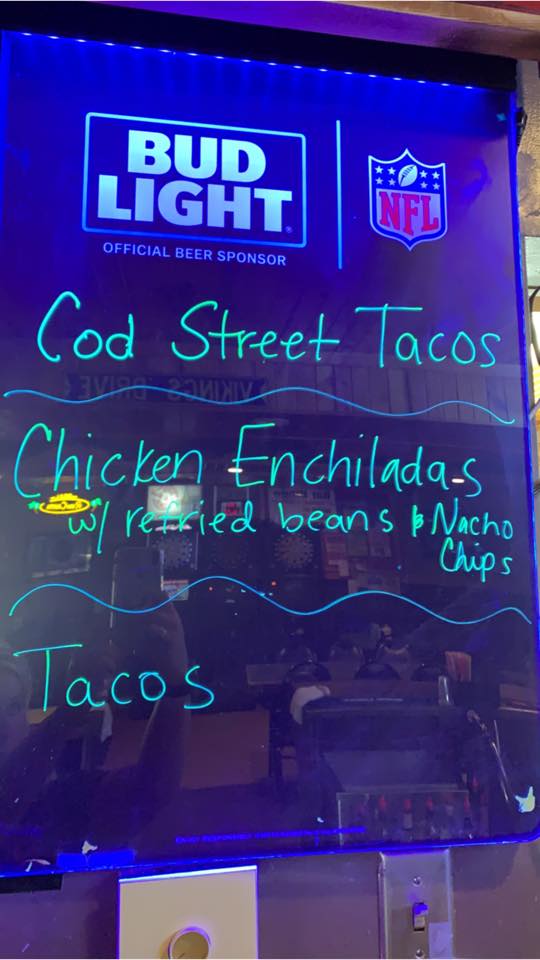 BUD
LIGHT
OFFICIAL BEER SPONSOR
NFL
Cod Street Tacos
VIKINGS DRIVE
Chicken Enchiladas
w/ refried beans & Nacho
Chips
Tacos